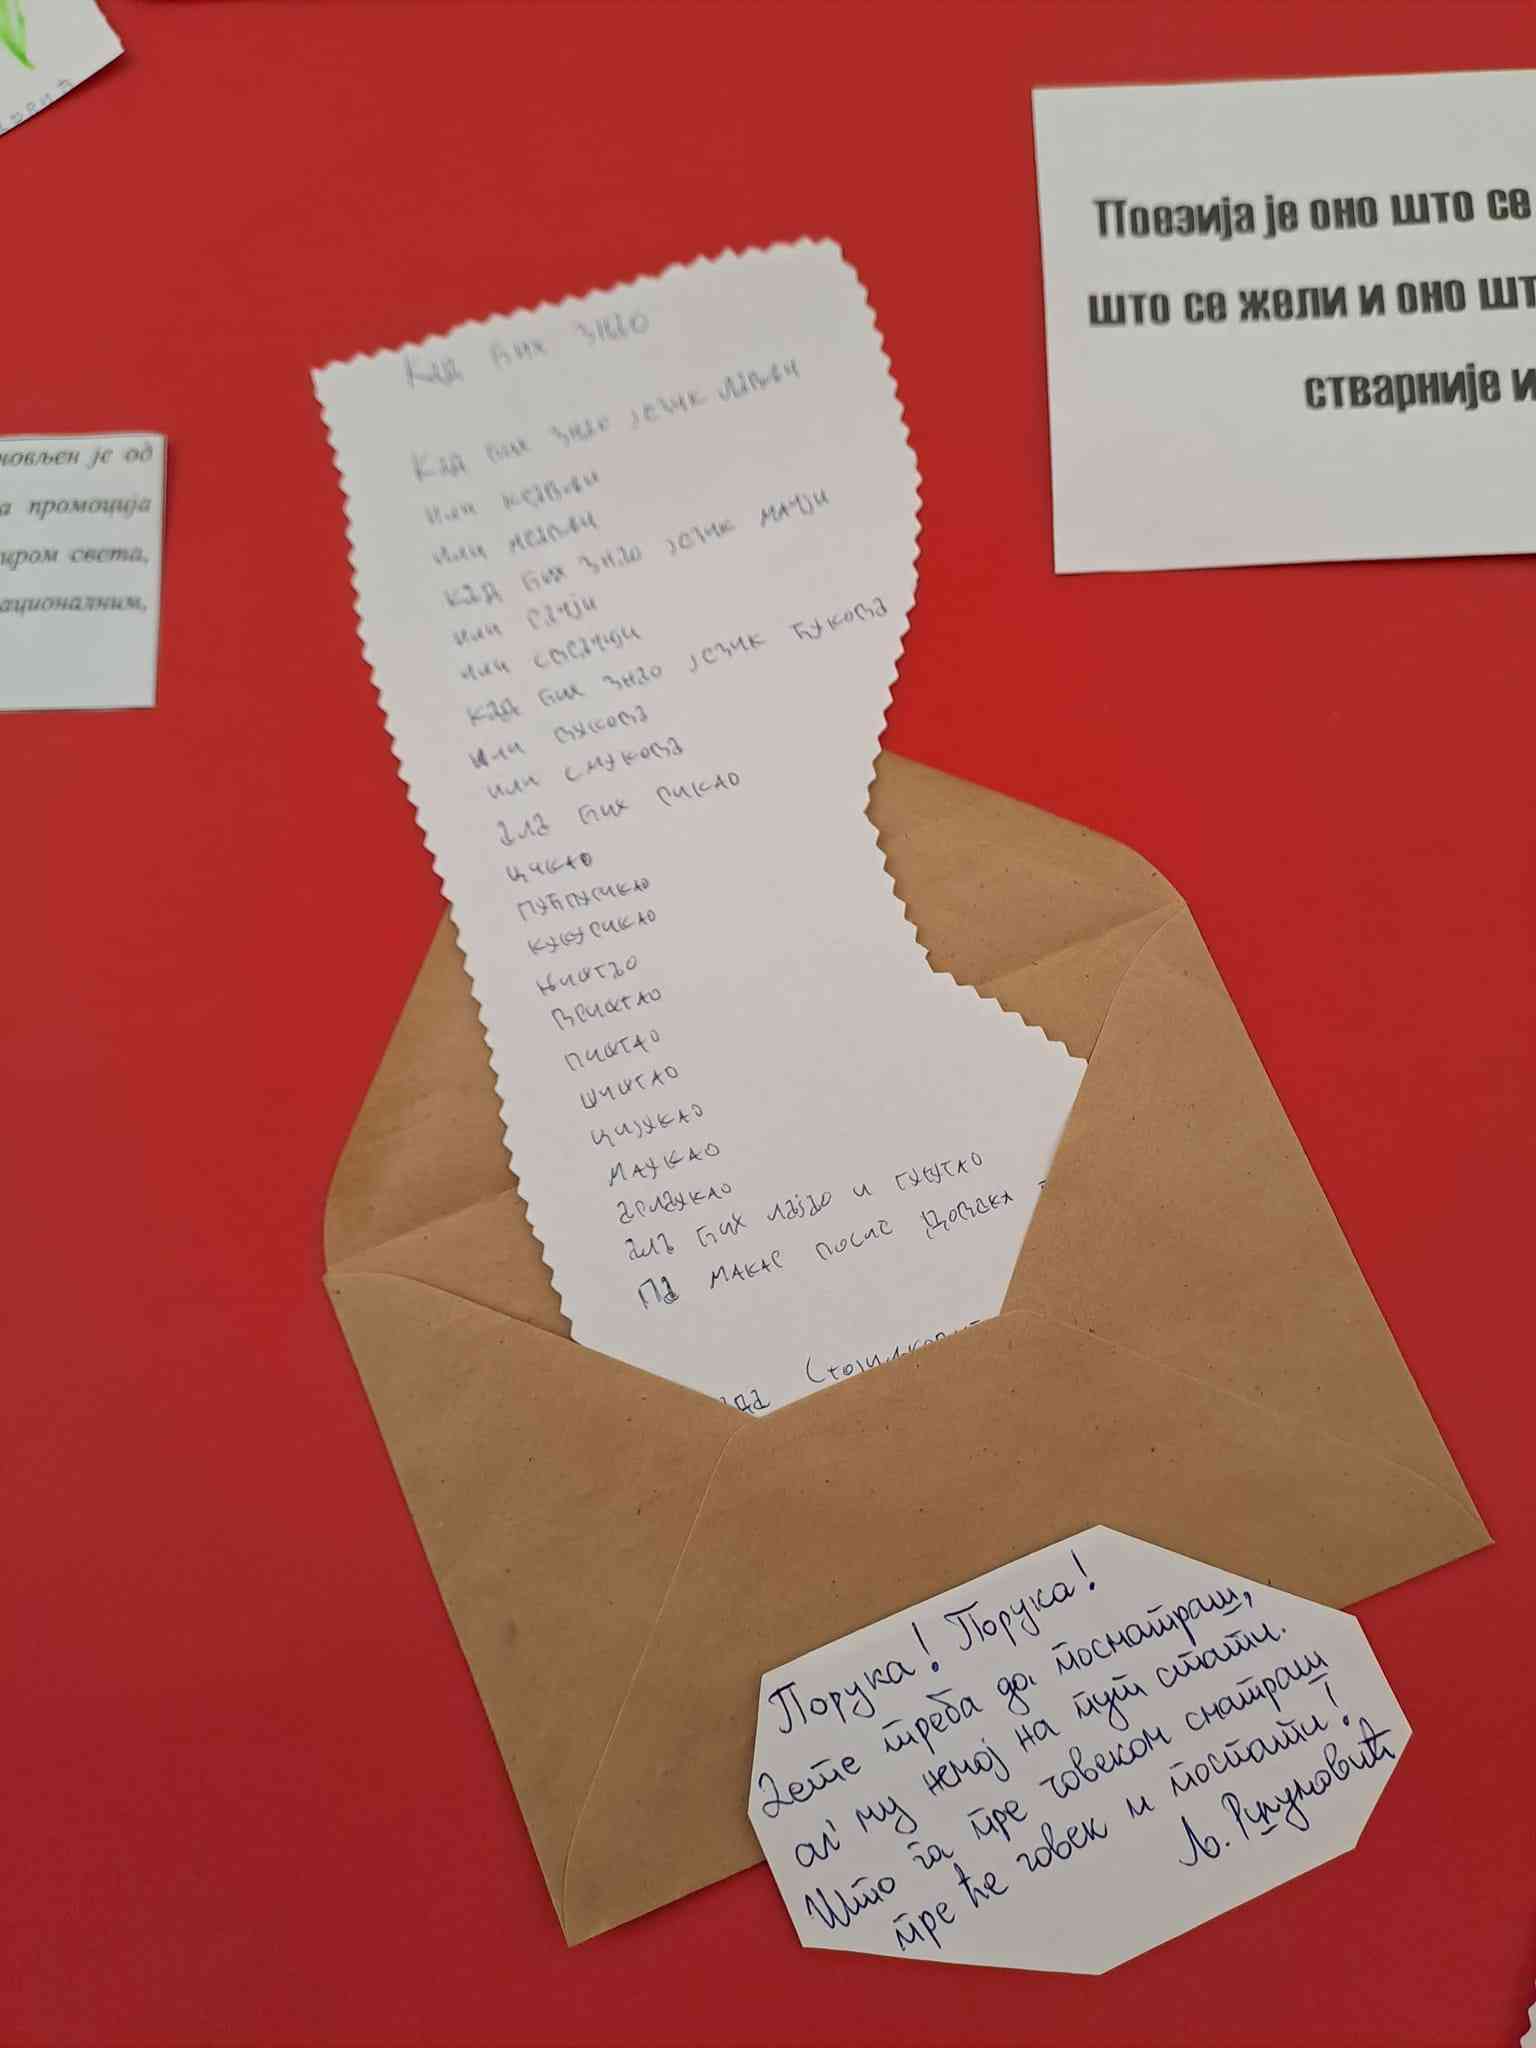 Поезија је оно што се
што се жели и оно шт
стварније и
новљен је од
а промоција
иром света,
ационалним,
Кад бих знао
Кад бих знао језик лављи
или крављи
или мрављи
кад бих знао језик мачји
или рачји
или сврачији
кад бих знао језик ћукова
или вукова
или смукова
ала бих рикао
цикао
пућпурикао
кукурикао
њиштао
вриштао
пиштао
шиштао
цијукао
маукао
арлаукао
ала бих лајао и гугутао
па макар после довака
Порука! Порука!
Дете треба да посматраш,
ал' му немој на пут стати.
Што га пре човеком сматраш
пре ће човек и постати!
Љ. Ршумовић